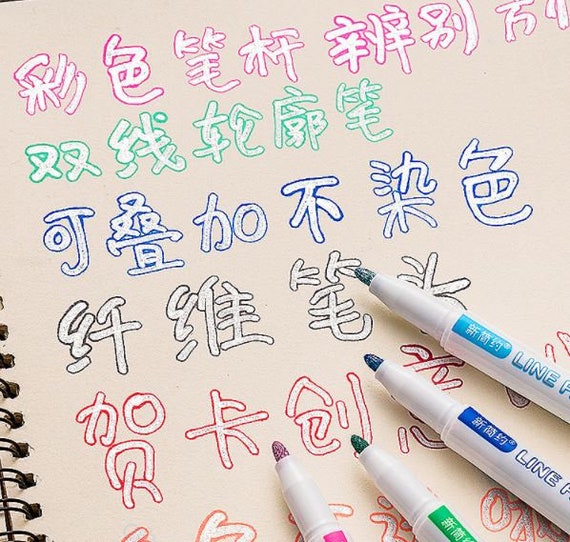 彩色笔杆 辨别方
双线轮廓笔
可叠加不染色
纤维笔头
贺卡创意
新简约®
LINE
新简约®
LINE
新简约